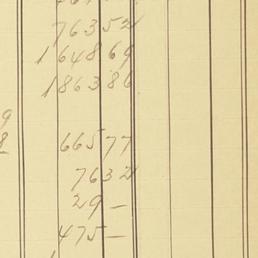 763 52
1648 69
1863 86
9
8 665 77
76 32
29 —
475 —